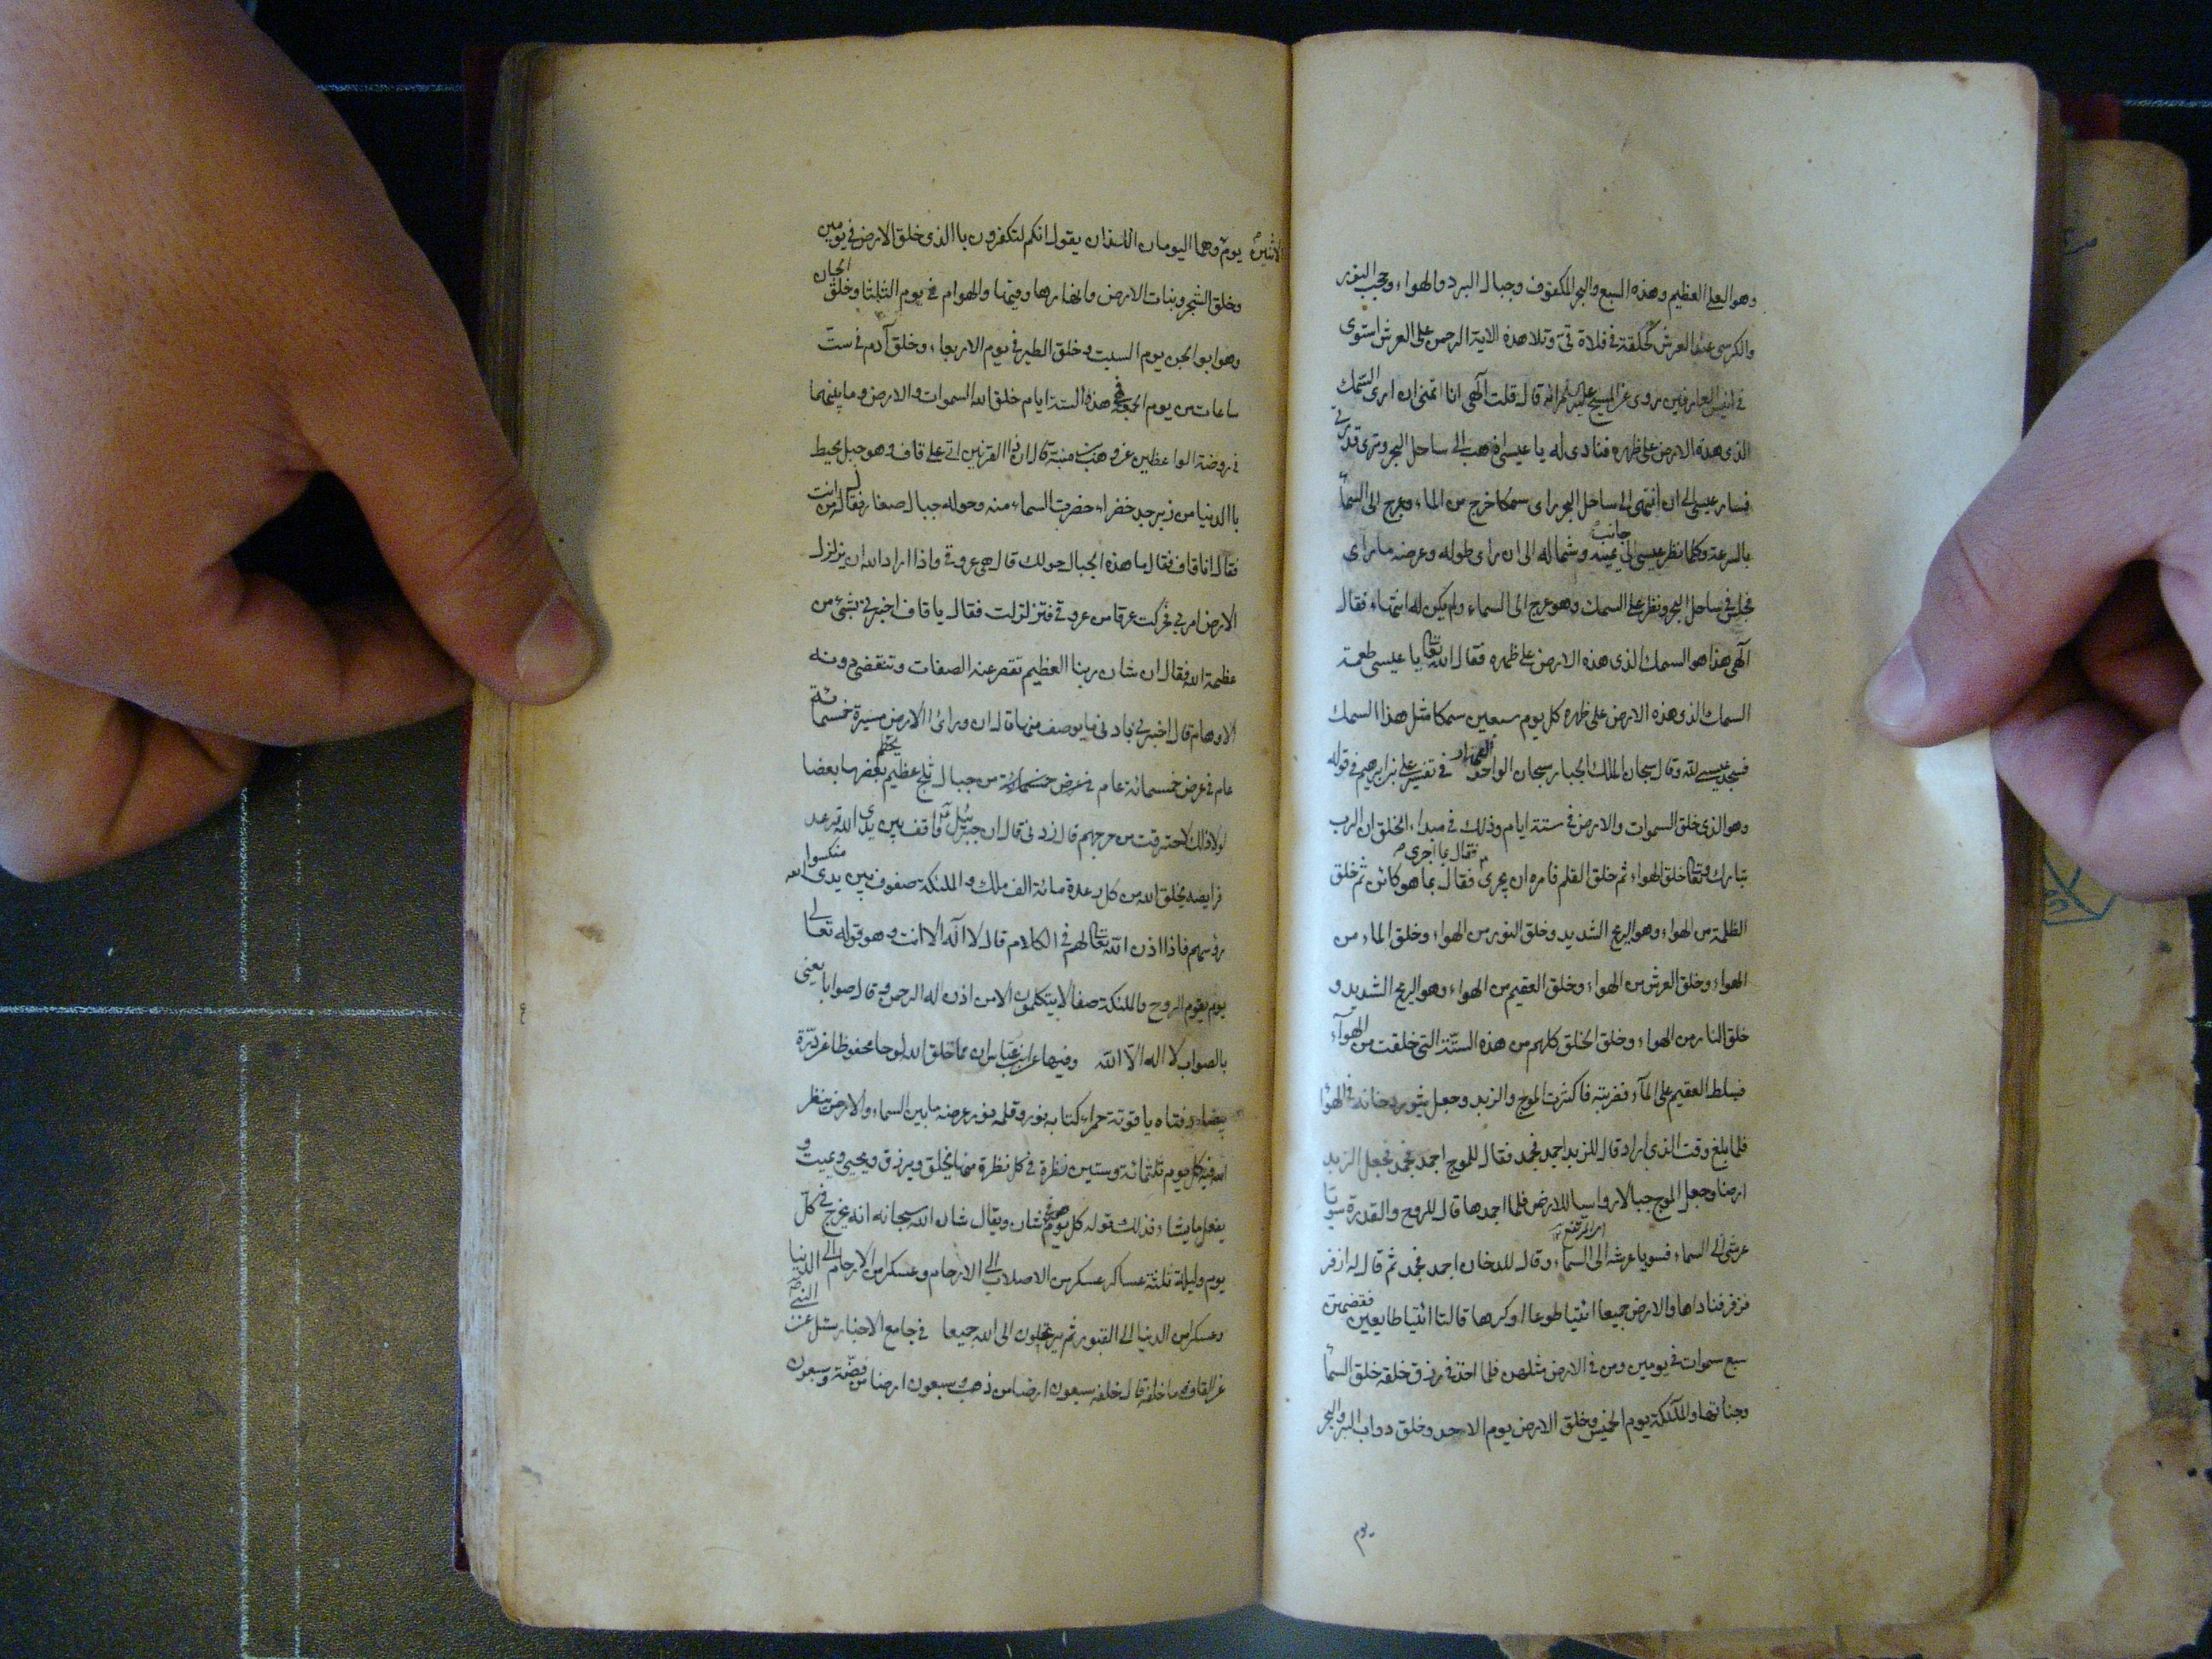 وهو العلي العظيم وهذه السبع والبحر المكفوف وجبال البرد والهواء وحجب النور
والكرسي عند العرش كحلقة في فلاة قيّ وتلا هذه الاية الرحمن على العرش استوى
في انيس العارفين روى عن المسيح عليه السلام انه قال قلت آلهي انا اتمنى ان ارى السمك
الذى هذه الارض على ظهره فنادى له يا عيسى اذهب الى ساحل البحر وترى قدرتي
فسار عيسى الى ان انتهى الى ساحل البحر راى سمكا خرج من الماء وعرج الى السماء
بالسرعة وكلما نظر عيسى الى جانب يمينه وشماله الى ان راى طوله وعرضه ما راى
فجلس في ساحل البحر ونظر على السمك وهو عرج الى السماء ولم يكن له انتهاء فقال
آلهي هذا هو السمك الذى هذه الارض على ظهره فقال الله تعا يا عيسى طعمة
السمك الذى هذه الارض على ظهره كل يوم سبعين سمكا مثل هذا السمك
فسجد عيسى لله وقال سبحان الملك الجبار سبحان الواحد القهار في تفسير علي بن ابرهيم في قوله
وهو الذى خلق السموات والارض في ستة ايام وذلك في مبداء الخلق ان الرب
تبارك وتعا خلق الهواء ثم خلق القلم فامره ان يجرى فقال بما اجرى فقال بما هو كائن ثم خلق
الظلمة من الهواء وهو الريح الشديد وخلق النور من الهواء وخلق الماء من
الهواء وخلق العرش من الهواء وخلق العقيم من الهواء وهو الريح الشديد و
خلق النار من الهواء وخلق الخلق كلهم من هذه الستة التى خلقت من الهواء
فسلط العقيم على الماء فضربته فاكثرت الموج والزبد وجعل يثور دخانه في الهوا
فلما بلغ وقت الذي اراد قال للزبد اجمد فجمد فقال للموج اجمد فجمد فجعل الزبد
ارضا وجعل الموج جبالا رواسيا للارض فلما اجمدها قال للروح والقدرة سويا
عرشي الى السماء فسويا عرشه الى السماء وقال للدخان اجمد فجمد ثم قال له ازفر
فزفر فناداها والارض جميعا ائتيا طوعا او كرها قالتا اتينا طايعين فقضيهن
سبع سموات في يومين ومن في الارض مثلهن فلما اخذ في رزق خلقه خلق السما
وجناتها والملئكة يوم الخميس وخلق الارض يوم الاحد وخلق دواب البر والبحر
يوم
الاثنين يوم وهما اليومان اللذان يقول انكم لتكفرون باالذى خلق الارض في يومين
وخلق الشجر ونبات الارض وانهارها وفيها والهوام في يوم الثلثا وخلق الجان
وهو ابو الجن يوم السبت وخلق الطير في يوم الاربعاء وخلق آدم في ست
ساعات من يوم الجمعة في هذه الستة ايام خلق الله السموات والارض وما بينهما
في روضة الواعظين عن وهب بن منبه قال ان ذا القرنين اتى على قاف وهو جبل يحيط
باالدنيا من زبرجد خضراء خضرت السماء منه وحوله جبال صغار فقال له من انت
فقال انا قاف فقال ما هذه الجبال حولك قال هي عروقي واذا اراد الله ان يزلزل
الارض امرني فحركت عرقا من عروقي فتزلزلت فقال يا قاف اخبرني بشئ من
عظمة الله فقال ان شان ربنا العظيم تقصر عنه الصفات وتنقضى دونه
الاوهام قال اخبرني بادنى ما يوصف منها قال ان ورائى الارض مسيرة خمسمائة
عام في عرض خمسمائة عام من جبال ثلج عظيم يحطم بعضها بعضا
لولا ذلك لاحترقت من حر جهنم قال زدنى قال ان جبرئيل واقف بين يدى الله ترعد
فرايصه يخلق الله من كل رعدة مائة الف ملك والملئكة صفوف بين يدى الله منكسوا
رؤسهم فاذا اذن الله تعا لهم في الكلام قال لا آله الا انت وهو قوله تعالى
يوم يقوم الروح والملئكة صفا لا يتكلمون الا من اذن له الرحمن وقال صوابا يعنى
بالصواب لا اله الا الله وفيها عن ابن عباس ان مما خلق الله لوحا محفوظا من درة
بيضاء دفتاه ياقوتة حمراء كتابه نور وقلمه نور عرضه ما بين السماء والارض ينظر
الله فيه كل يوم ثلثمائة وستين نظرة في كل نظرة منها يخلق ويرزق ويحيى ويميت و
يفعل ما يشاء فذلك قوله كل يوم هو في شان ويقال شان الله سبحانه انه يخرج في كل
يوم وليلة ثلثة عساكر عسكر من الاصلاب الى الارحام وعسكر من الارحام الى الدنيا
وعسكر من الدنيا الى القبور ثم يرتحلون الى الله جميعا في جامع الاخبار سئل عن النبي
عن القاف وما خلفه قال خلفه سبعون ارضا من ذهب وسبعون ارضا من فضة وسبعون